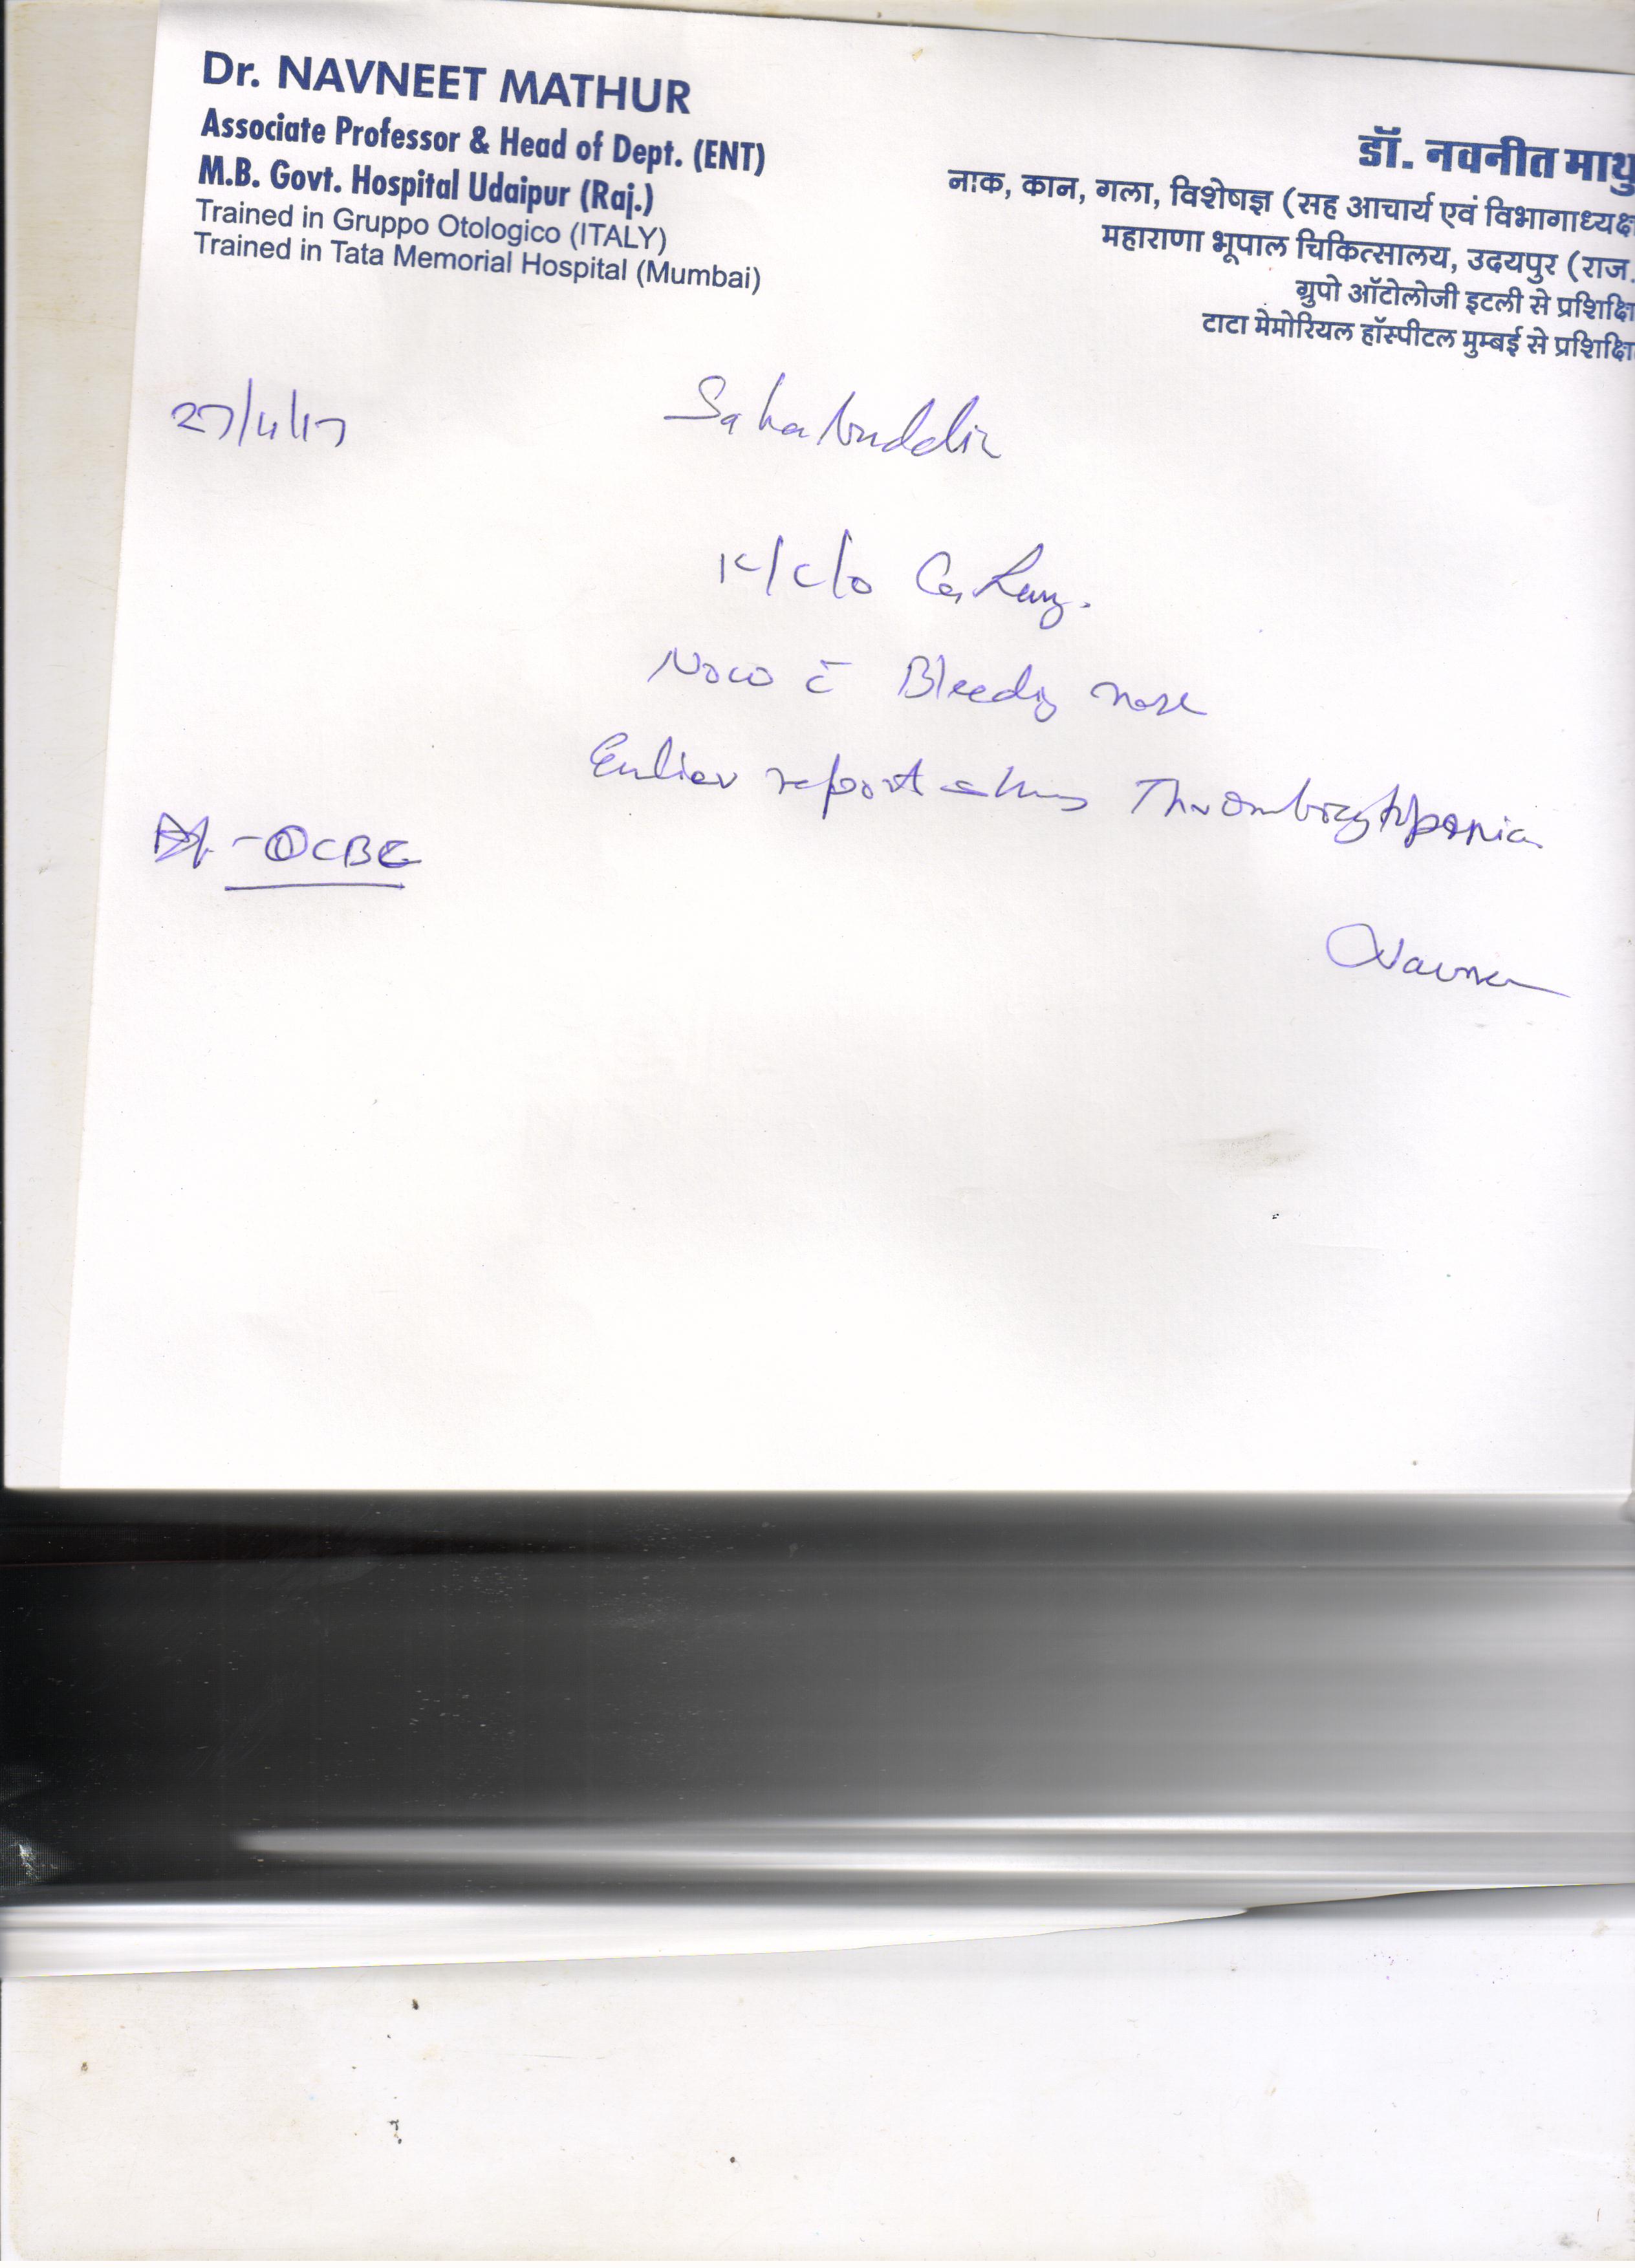 Dr. NAVNEET MATHUR
Associate Professor & Head of Dept. (ENT)
M.B. Govt. Hospital Udaipur (Raj.)
Trained in Gruppo Otologico (ITALY)
Trained in Tata Memorial Hospital (Mumbai)
डॉ. नवनीत माथु
नाक, कान, गला, विशेषज्ञ (सह आचार्य एवं विभागाध्यक्ष
महाराणा भूपाल चिकित्सालय, उदयपुर (राज.
ग्रुपो ऑटोलोजी इटली से प्रशिक्षि
टाटा मेमोरियल हॉस्पीटल मुम्बई से प्रशिक्षि
27/4/17
Sahabuddin
K/c/o Ca, Lung.
Now c̄ Bleeding nose
Earlier report shows Thrombocytopenia
- ① CBC